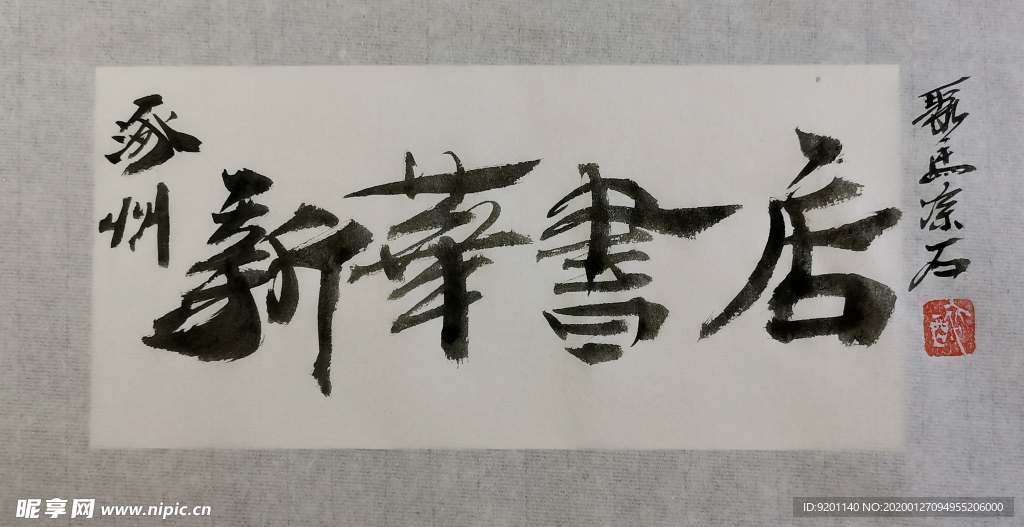 涿州
新華書店
昵享网 www.nipic.cn
ID:9201140 NO:20200127094955206000